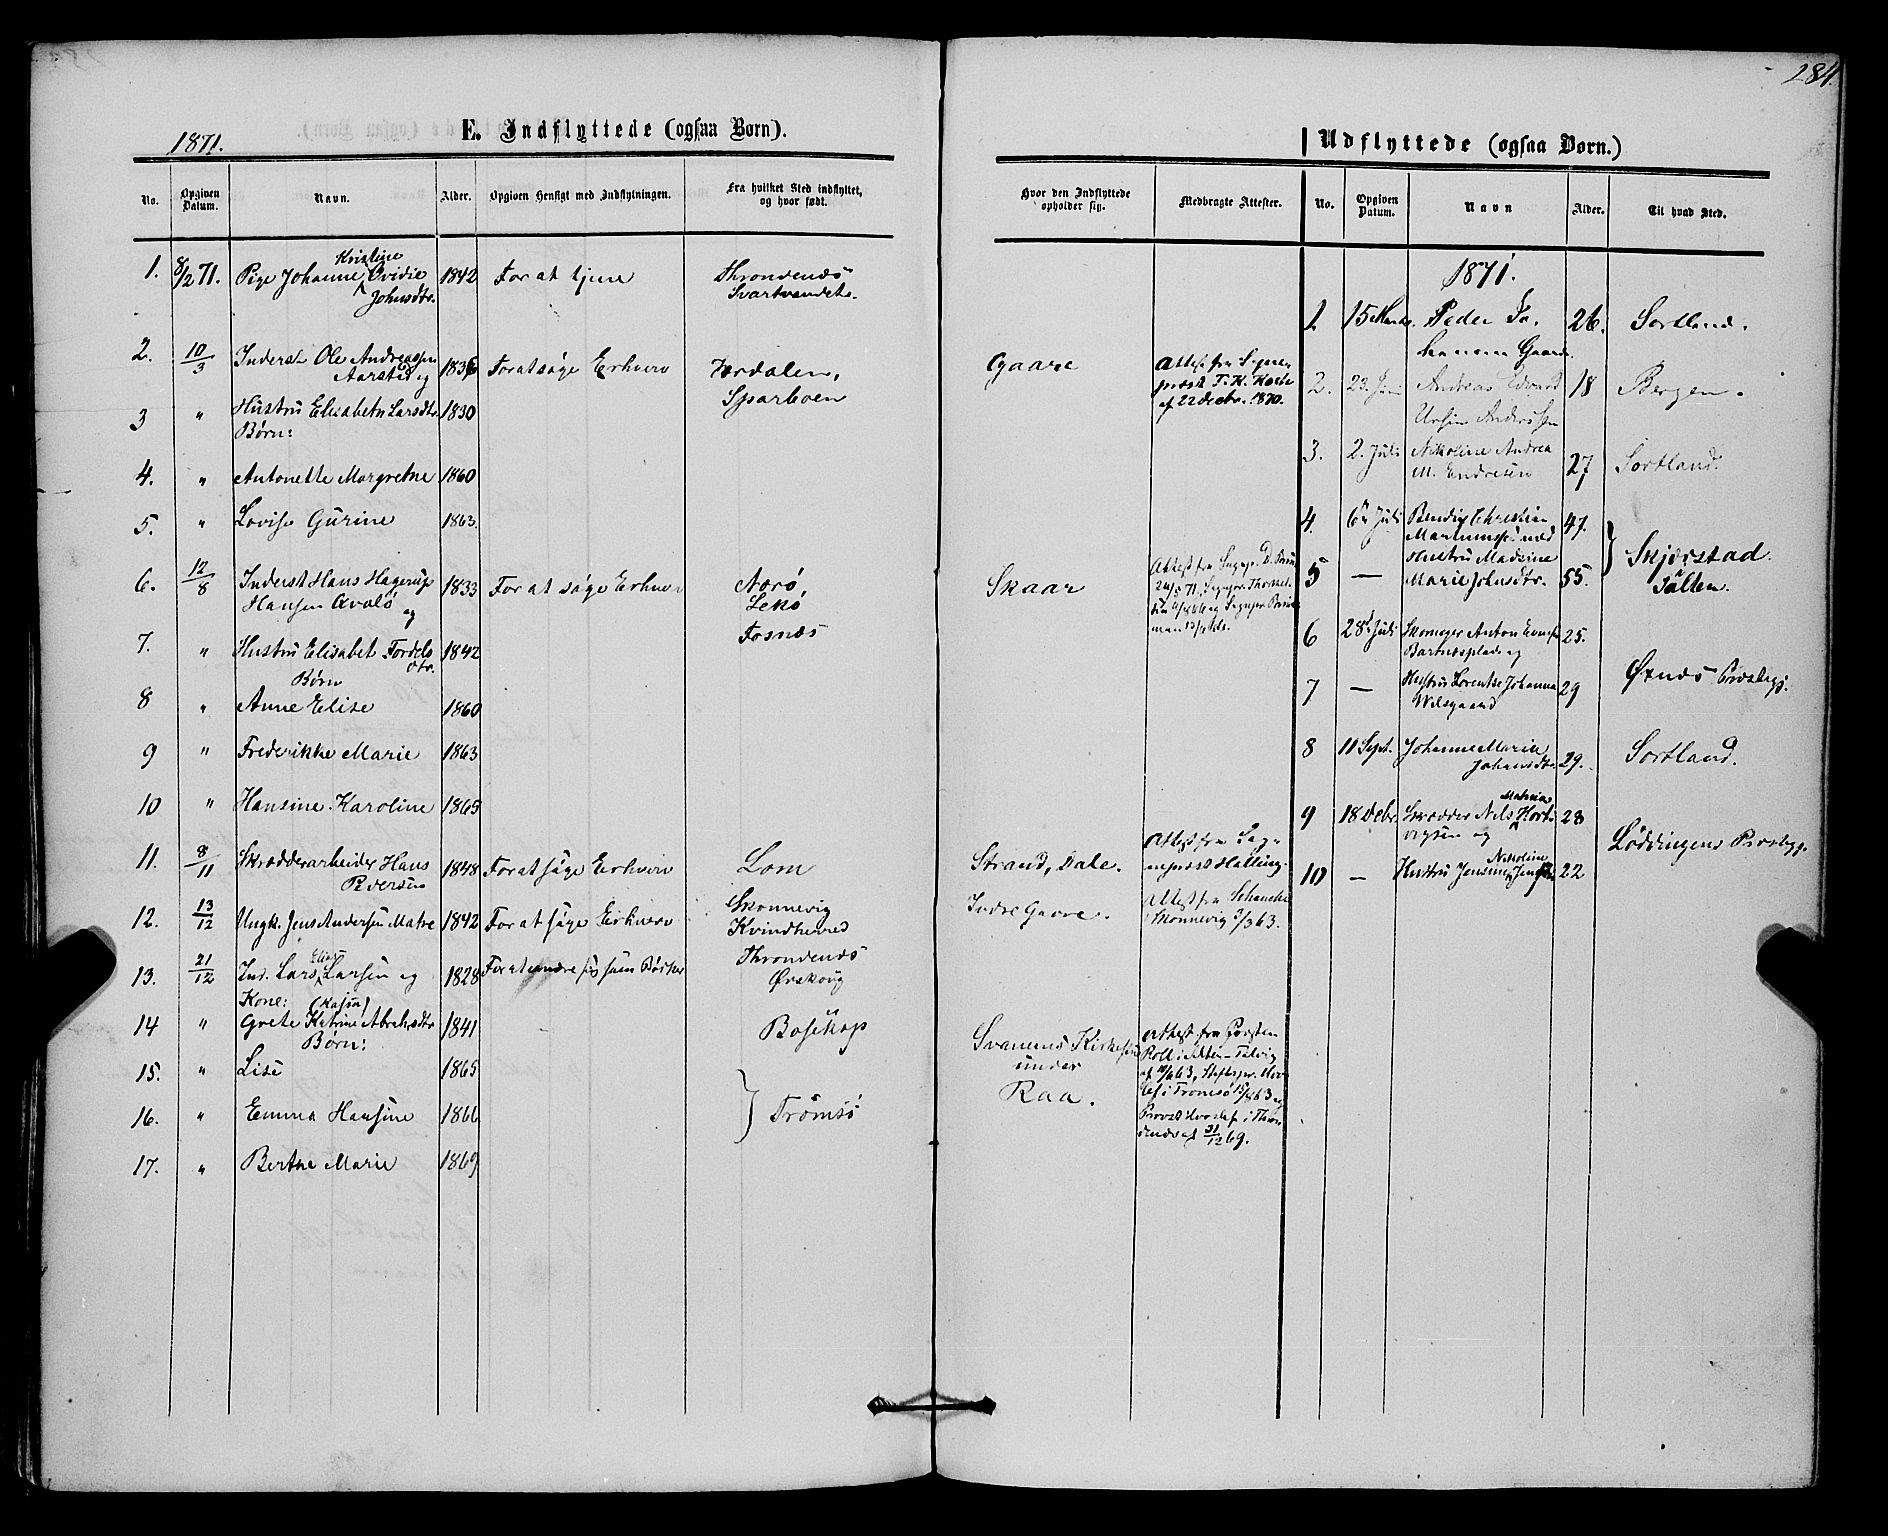 284.
1871.
E. Indflyttede (ogsaa Børn).
No.
Opgiven Datum.
Navn.
Alder.
Opgiven Hensigt med Indflytningen.
Fra hvilket Sted indflyttet, og hvor født.
1. 8/2 71. Pige Johanne Kristine Ovidie 1842 For at tjene Throndenæs
Johnsdtr. Svartvandet.
2. 10/3 Inderst Ole Andreassen 1836 For at søge Erhverv Værdalen,
Aarstad og
3 " Hustru Elisabeth Larsdtr. 1830 Sparboen
Børn:
4. " Antonette Margrethe 1860
5. " Lovise Gurine 1863.
6. 12/8 Inderst Hans Hagerup 1833 For at søge Erhverv Nærö,
Hansen Avalö og Lekö
7. " Hustru Elisabet Fordels 1842 Fosnæs
dtr.
Børn
8 " Anne Elise 1860
9 " Frederikke Marie 1863
10 " Hansine Karoline 1865
11. 8/11 Skrædderarbeider Hans 1848 For at søge Erhverv Lom
Pedersen
12. 13/12 Ungk. Jens Andersen Matre 1842 For at søge Erhverv Skonnevig
Kvindherred
13. 21/12 Ind. Lars Elias Larsen og 1828 For at nære sig som Bødker Throndenæs
Ørskoug
Kone: (Kajsa)
14 " Grete Katrine Abrahsdtr 1841 Bosekop
Børn:
15. " Lise 1865
16. " Emma Hansine 1866 Tromsö
17. " Berthe Marie 1869
Udflyttede (ogsaa Børn.)
Hvor den Indflyttede opholder sig.
Medbragte Attester.
No.
Opgiven Datum.
Navn
Alder.
Til hvad Sted.
Gaare
Attest fra Sogne
præst T. K.
af 22 Decbr. 1870.
Skaar
Attest fra Sognepr.
24/5 71, Sognepr.
og Sognepr.
Strand, Dale.
Attest fra Sog-
nepræst Halling.
Indre Gaare.
Attest fra Schancke
i Skonnevig 3/3 63.
Svanens Kirkesogn
under
Raa.
Attest fra Presten
Roll i Alten-Talvig
af 63, Stiftspr.
i Tromsö 63 og
Provst i Thron
denæs af 31/12 69.
1871.
1 15 Marts. Peder Jo. 26. Sortland.
hannesen Gaard.
2. 23. Juni Andreas Edvard 18 Bergen.
Ursin Anderssen
3. 2. Juli Nikoline Andrea 27 Sortland.
M. Endresen
4. 6te Juli Bendix Christian 47.
Martinussen med
5 — Hustru Madsine Skjerstad.
Marie Johnsdtr. 55. i Salten.
6 28de Juli Skomager Anton 25.
Bartnæsplads og
7 — Hustru Lorentse Johanna 29 Øxnæs Præstegj.
Vilsgaard
8 11 Sept. Johanne Marie
Johansdtr 29. Sortland.
9 18 Decbr. Skrædder Nils Mathias Hart 28
vigsen og Løddingens Præstegj.
10 — Hustru Jensine Nikoline 22